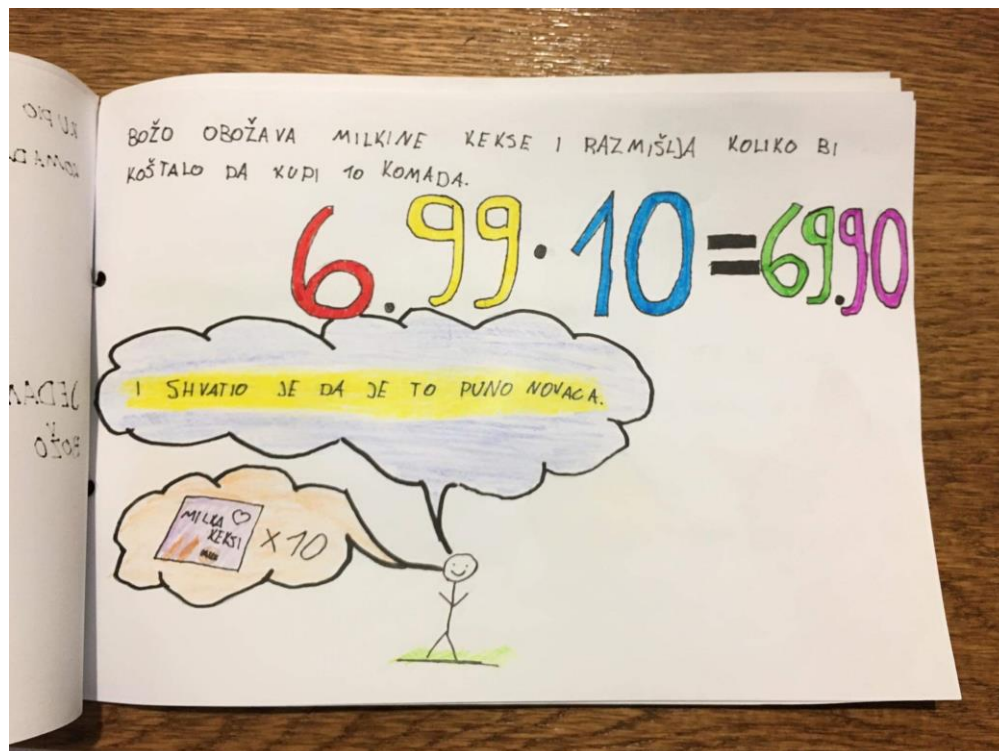 BOŽO OBOŽAVA MILKINE KEKSE I RAZMIŠLJA KOLIKO BI
KOŠTALO DA KUPI 10 KOMADA.
6.99·10=69.90
I SHVATIO JE DA JE TO PUNO NOVACA.
MILKA
KEKSI
X10
KUPIO
KOMADA
JEDAN
BOŽO